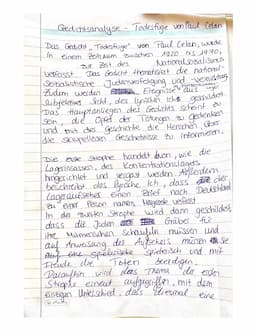 Gedichtsanalyse - Todesfuge von Paul Celan
Das Gedicht „Todesfuge" von Paul Celan, wurde
in einem Zeitraum zwischen
zur Zeit des Nationalsozialismus
verfasst. Das Gedicht thematisiert die national-
sozialistische Judenverfolgung und
Zudem werden Ereignisse aus
subjektiver Sicht, des lyrischen Ichs geschildert.
Das Hauptanliegen des Gedichts scheint zu
sein, die Opfer der Tötungen zu Gedenken
und mit des Geschichte die Menschen über
die skrupellosen Geschehnisse zu informieren.
Die erste Strophe handelt davon, wie die
Lagerinsassen des Konzentrationslagers
hingerichtet und vergast werden. Außerdem
beschreibt das lyrische Ich, dass der
Lageraufseher einen Brief nach Deutschland
zu einer Person namens Margarete verfasst.
In der zweiten Strophe wird dann geschildert,
dass die Juden Gräber für
ihre Mitmenschen schaufeln müssen und
auf Anweisung des Aufsehers müssen sie
spielerisch und mit
Freude die Toten beerdigen.
Daraufhin wird das Thema der ersten
Strophe erneut aufgegriffen, mit dem
einzigen Unterschied, dass diesmal eine